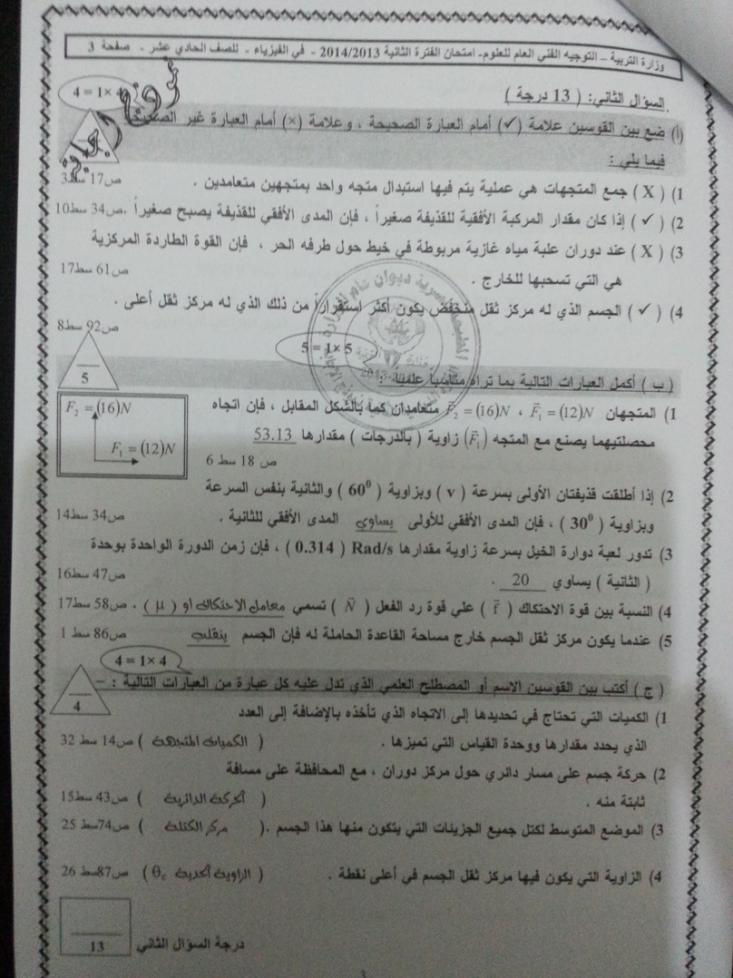 وزارة التربية – التوجيه الفني العام للعلوم- امتحان الفترة الثانية 2014/2013 - في الفيزياء - للصف الحادي عشر - صفحة 3
السؤال الثاني: ( 13 درجة )
4 = 1× 4
نموذج الإجابة
(أ) ضع بين القوسين علامة (✓) أمام العبارة الصحيحة ، وعلامة (×) أمام العبارة غير الصحيحة
فيما يلي :
1) ( X ) جمع المتجهات هي عملية يتم فيها استبدال متجه واحد بمتجهين متعامدين . ص17 سط3
2) ( ✓ ) إذا كان مقدار المركبة الأفقية للقذيفة صغيراً ، فإن المدى الأفقي للقذيفة يصبح صغيراً . ص34 سط10
3) ( X ) عند دوران علبة مياه غازية مربوطة في خيط حول طرفه الحر ، فإن القوة الطاردة المركزية
هي التي تسحبها للخارج . ص61 سط17
4) ( ✓ ) الجسم الذي له مركز ثقل منخفض يكون أكثر استقراراً من ذلك الذي له مركز ثقل أعلى .
ص92 سط8
5 = 1× 5
5
( ب ) أكمل العبارات التالية بما تراه مناسباً علمياً :
1) المتجهان F₁ = (12)N ، F₂ = (16)N متعامدان كما بالشكل المقابل ، فإن اتجاه
محصلتيهما يصنع مع المتجه (F₁) زاوية ( بالدرجات ) مقدارها 53.13
ص 18 سط 6
F₂ = (16)N
F₁ = (12)N
2) إذا أطلقت قذيفتان الأولى بسرعة ( v ) وبزاوية ( 60⁰ ) والثانية بنفس السرعة
وبزاوية ( 30⁰ ) ، فإن المدى الأفقي للأولى يساوي المدى الأفقي للثانية . ص34 سط14
3) تدور لعبة دوارة الخيل بسرعة زاوية مقدارها Rad/s ( 0.314 ) ، فإن زمن الدورة الواحدة بوحدة
( الثانية ) يساوي 20 . ص47 سط16
4) النسبة بين قوة الاحتكاك ( f ) علي قوة رد الفعل ( N ) تسمي معامل الاحتكاك او ( µ ) . ص58 سط17
5) عندما يكون مركز ثقل الجسم خارج مساحة القاعدة الحاملة له فإن الجسم ينقلب ص86 سط 1
4 = 1× 4
4
( ج ) أكتب بين القوسين الاسم أو المصطلح العلمي الذي تدل عليه كل عبارة من العبارات التالية : –
1) الكميات التي تحتاج في تحديدها إلى الاتجاه الذي تأخذه بالإضافة إلى العدد
الذي يحدد مقدارها ووحدة القياس التي تميزها . ( الكميات المتجهة ) ص14 سط 32
2) حركة جسم على مسار دائري حول مركز دوران ، مع المحافظة على مسافة
ثابتة منه . ( الحركة الدائرية ) ص43 سط15
3) الموضع المتوسط لكتل جميع الجزيئات التي يتكون منها هذا الجسم .( مركز الكتلة ) ص74سط 25
4) الزاوية التي يكون فيها مركز ثقل الجسم في أعلى نقطة . ( الزاوية الحدية θc ) ص87سط 26
13
درجة السؤال الثاني